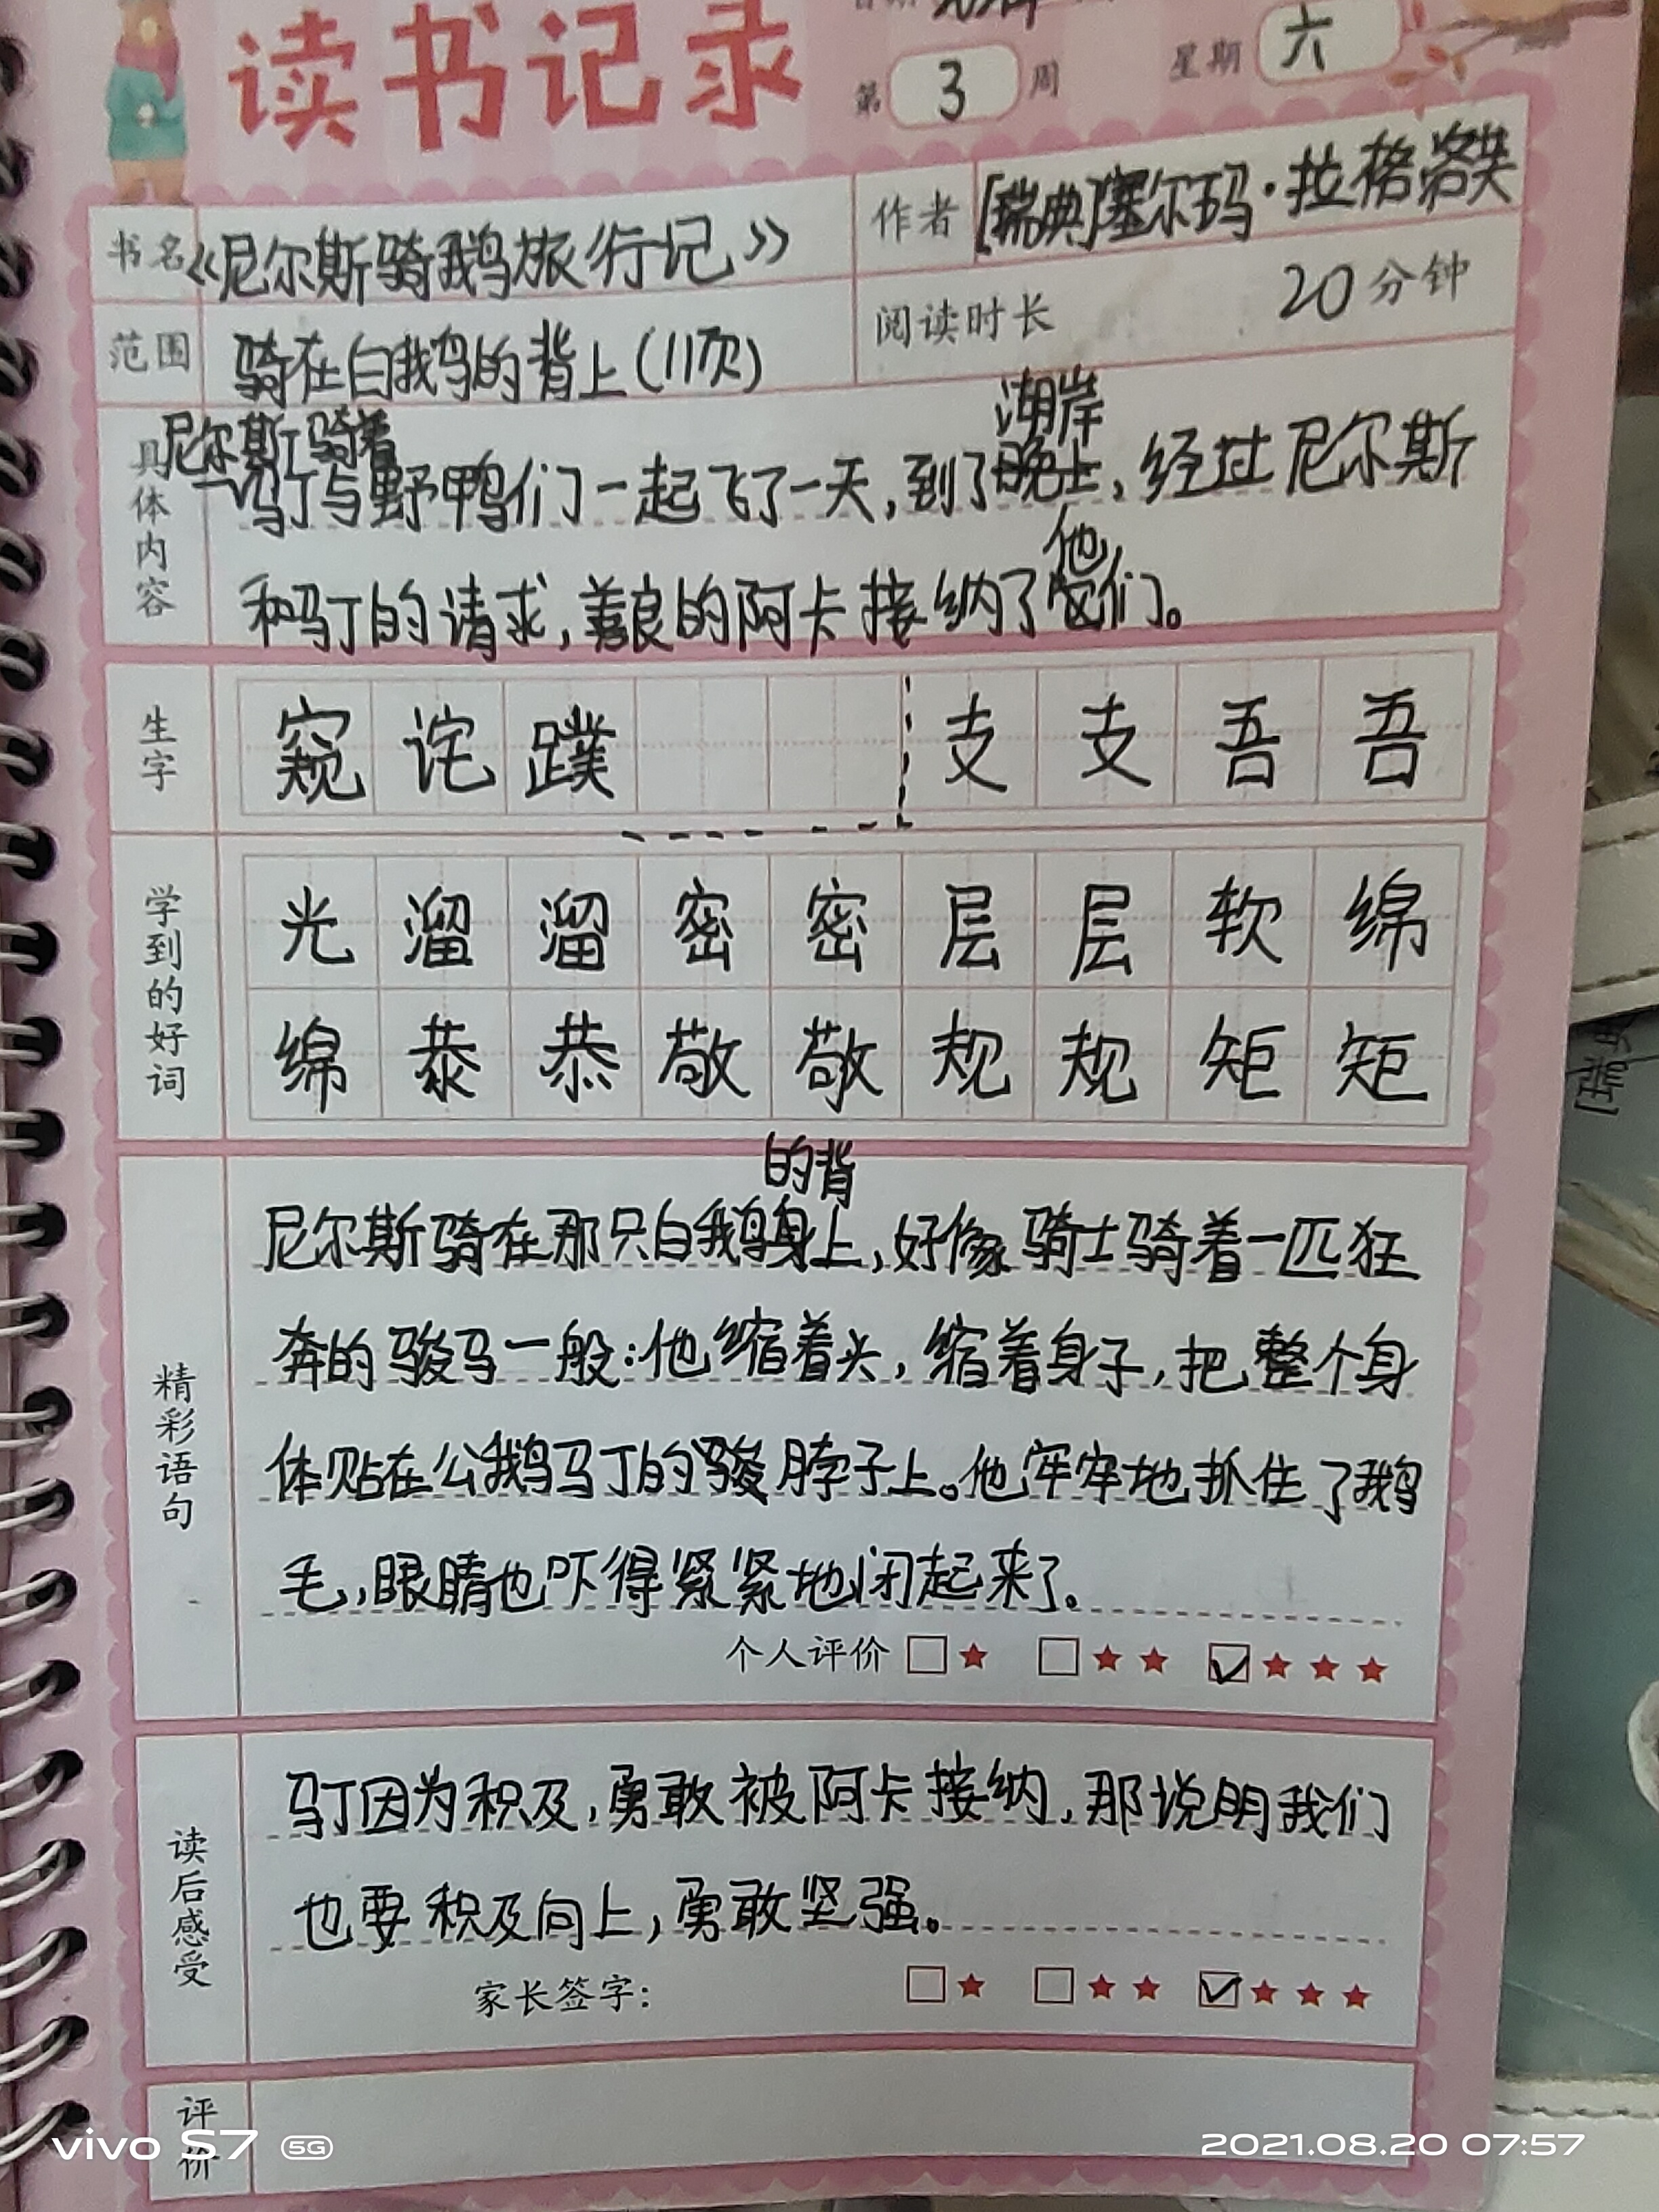 读书记录
第 3 周 星期 六
书名 《尼尔斯骑鹅旅行记》
作者 [瑞典]塞尔玛·拉格洛夫
范围 骑在白鹅的背上(11页)
阅读时长 20分钟
具体内容
尼尔斯骑着 湖岸
马丁与野鸭们一起飞了一天,到了,经过尼尔斯
他
和马丁的请求,善良的阿卡接纳了们。
生字 窥 诧 蹼 支 支 吾 吾
学到的好词
光 溜 溜 密 密 层 层 软 绵
绵 恭 恭 敬 敬 规 规 矩 矩
精彩语句
的背
尼尔斯骑在那只白鹅身上,好像骑士骑着一匹狂
奔的骏马一般:他缩着头,缩着身子,把整个身
体贴在公鹅马丁的脖子上。他牢牢地抓住了鹅
毛,眼睛也吓得紧紧地闭起来了。
个人评价
读后感受
马丁因为积及,勇敢被阿卡接纳,那说明我们
也要积及向上,勇敢坚强。
家长签字:
评价
vivo S7 5G
2021.08.20 07:57